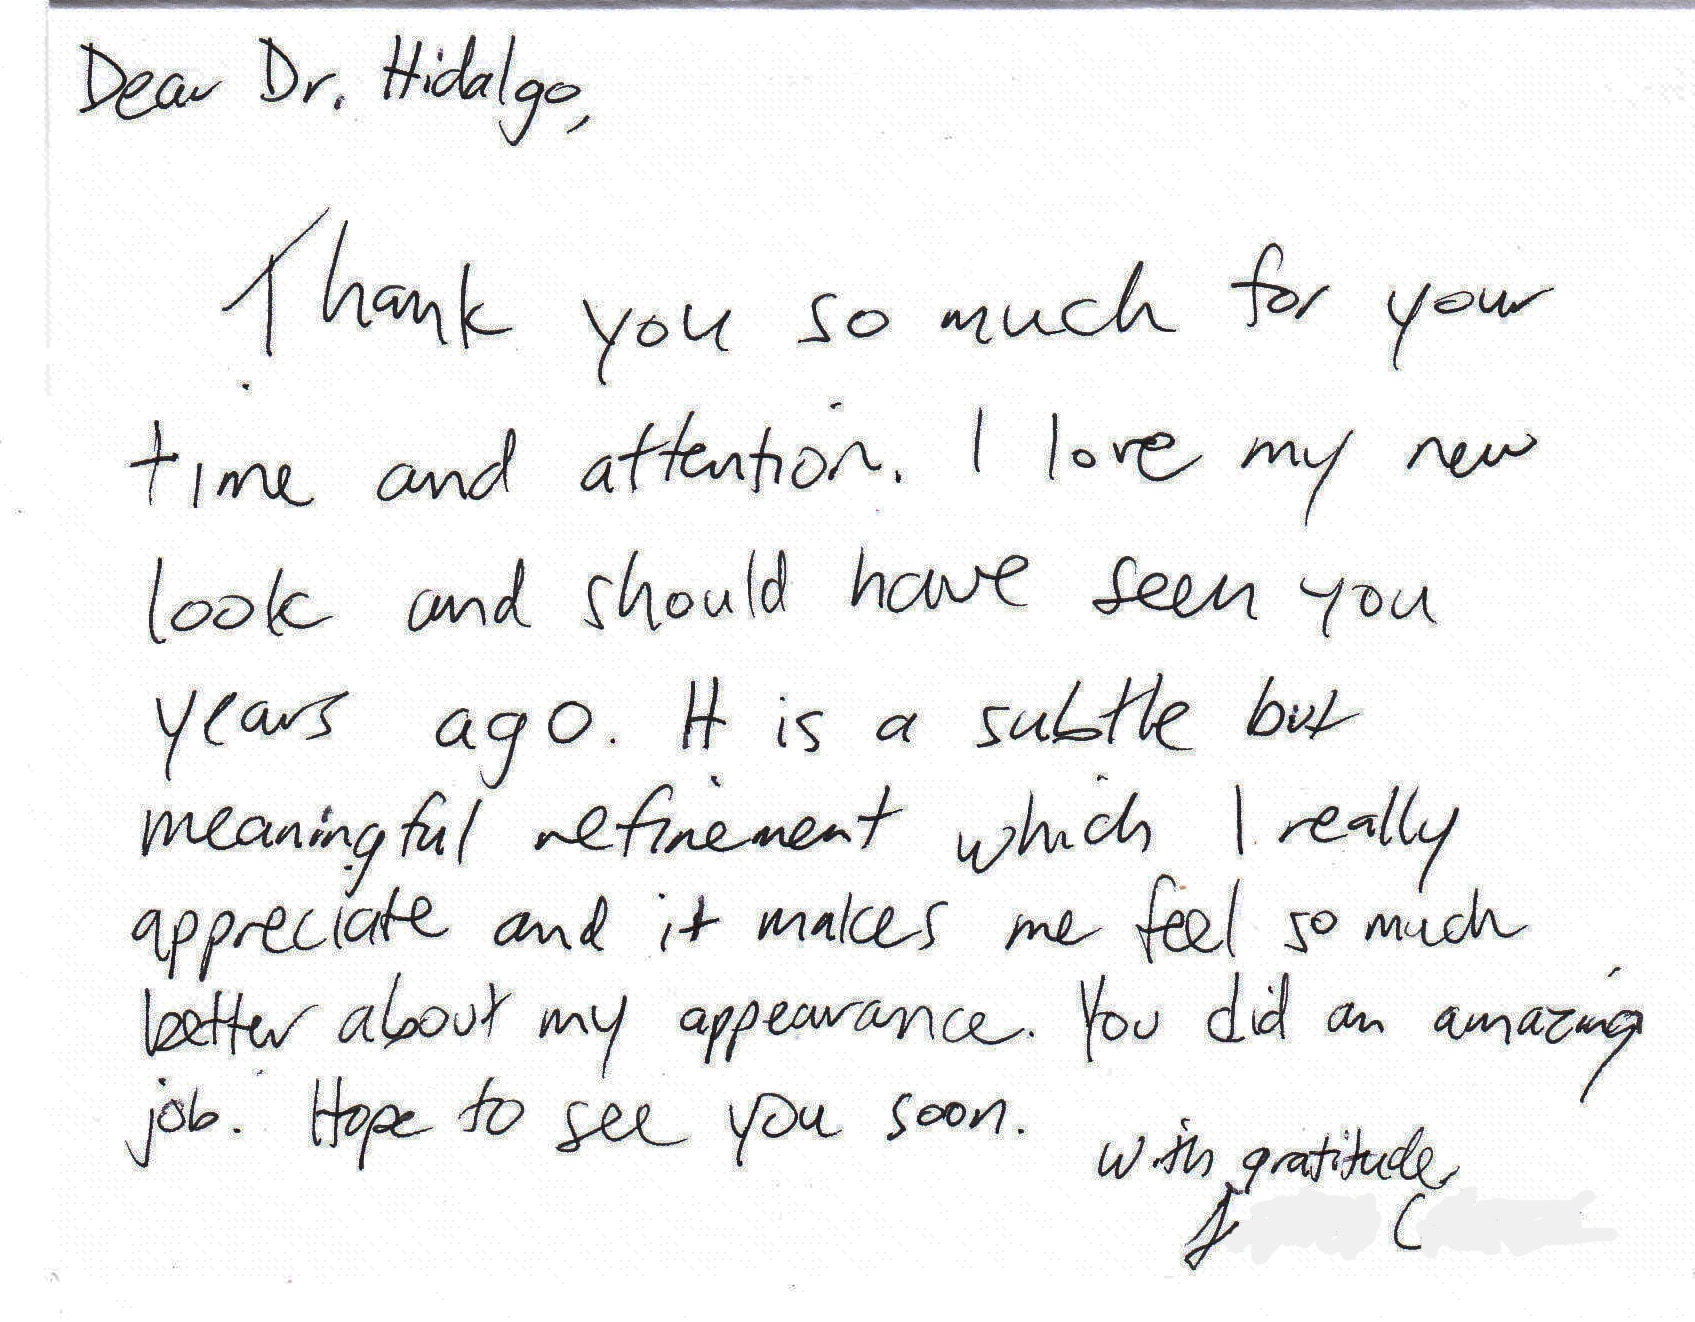 Dear Dr. Hidalgo,
Thank you so much for your
time and attention. I love my new
look and should have seen you
years ago. It is a subtle but
meaningful refinement which I really
appreciate and it makes me feel so much
better about my appearance. You did an amazing
job. Hope to see you soon.
with gratitude,
C